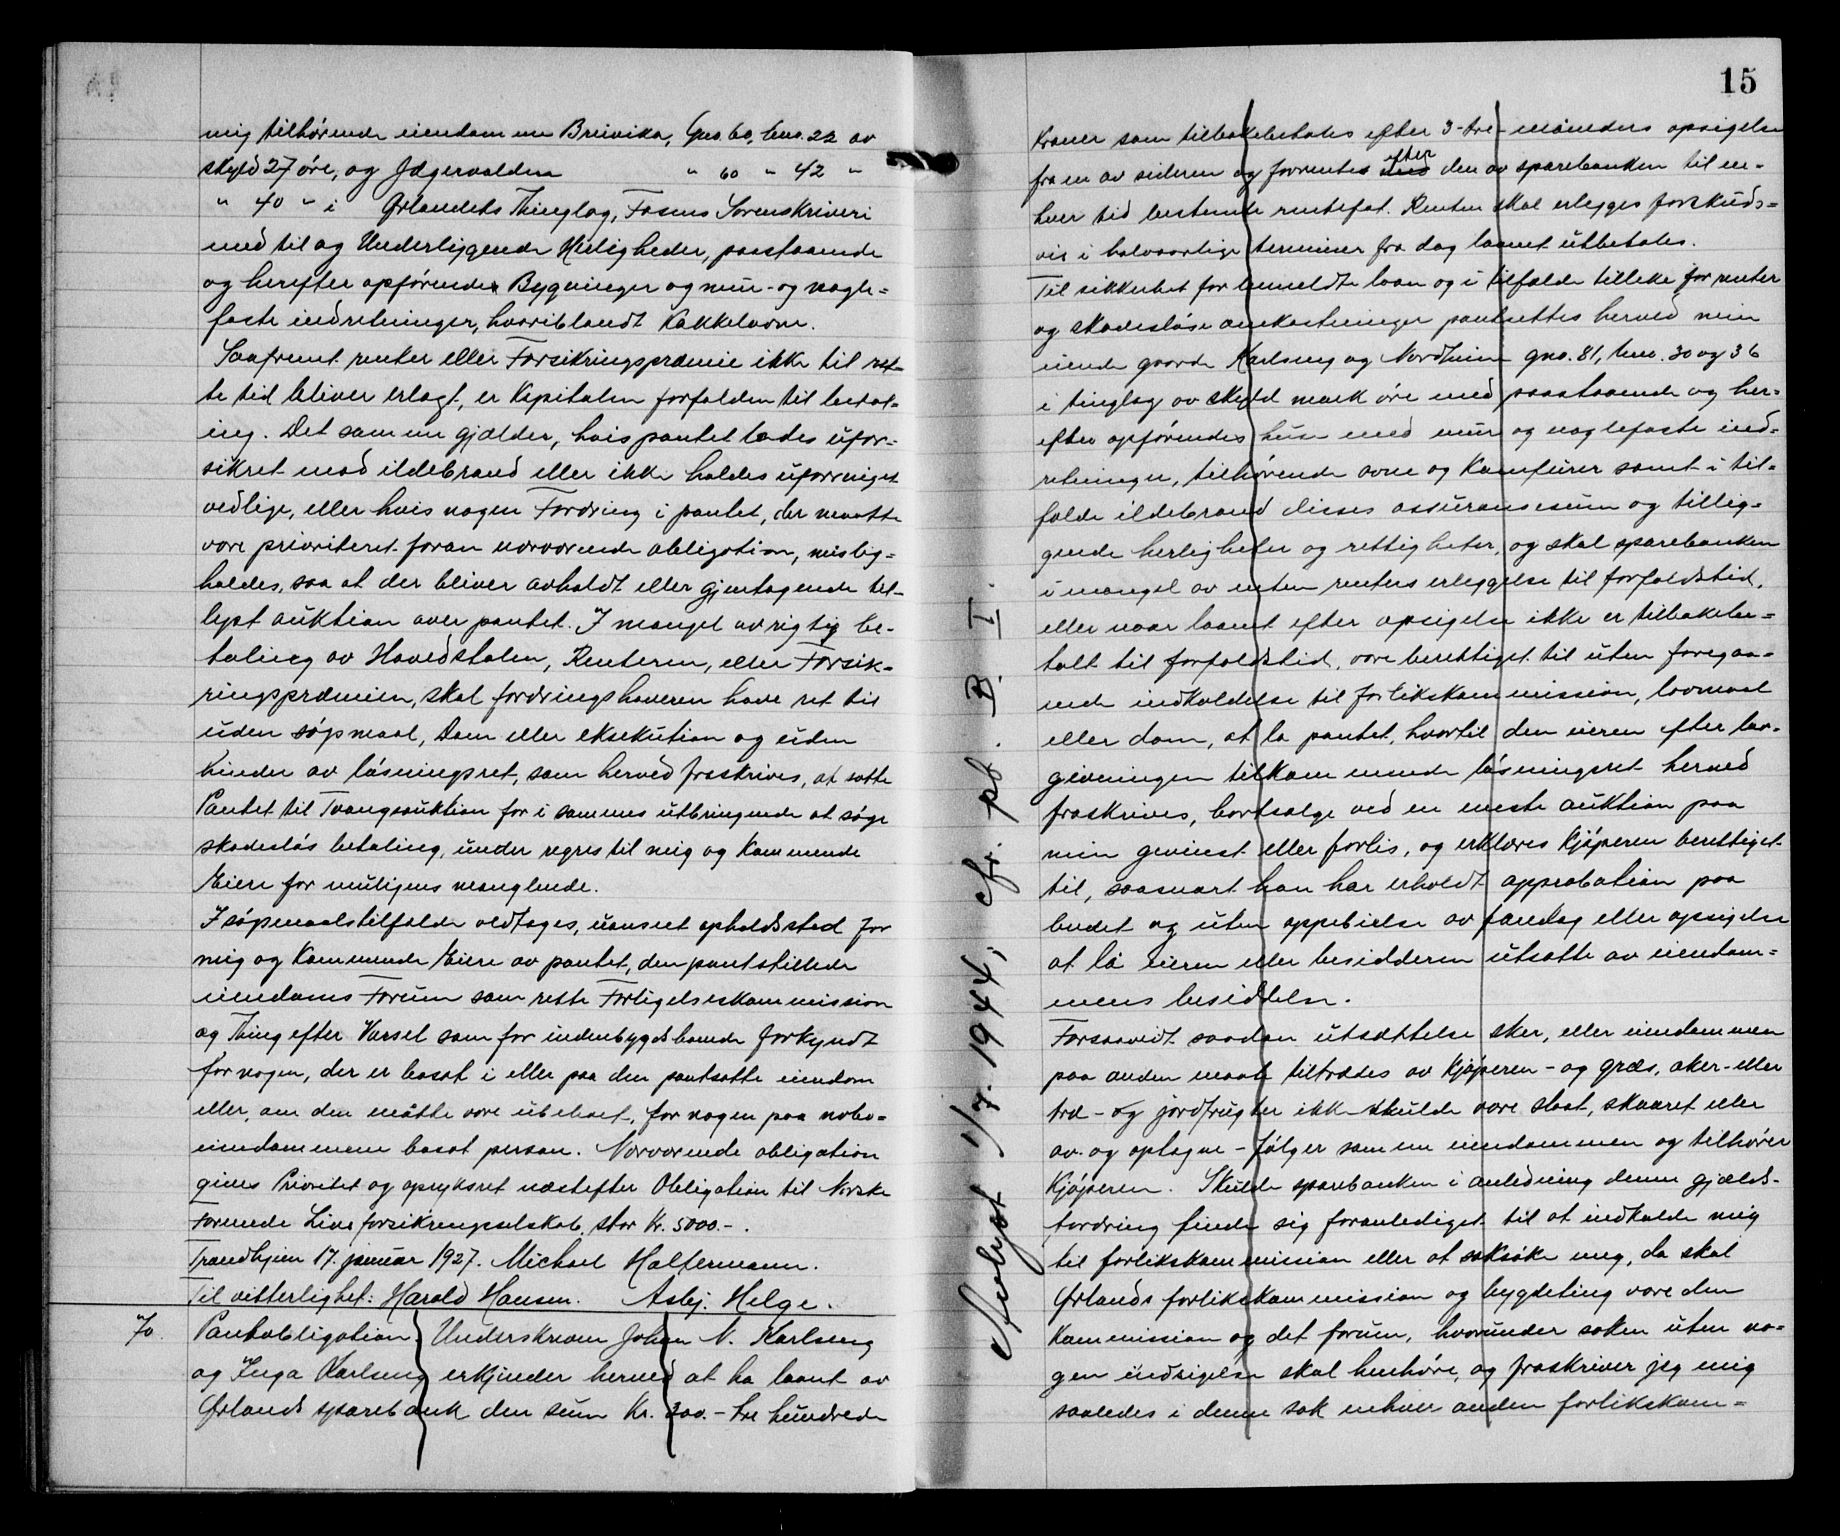 mig tilhørende eiendomme Breivika, Gno. 60, bno. 22 av
skyld 27 øre, og Jægervolden " 60 " 42 "
" 40 " i Ørlandets Thinglag, Fosens Sorenskriveri
med til og Underliggende Herligheder, paastaaende
og herefter opførendes Bygninger og mur- og nagle=
faste indretninger, hvoriblandt Kakkelovne.
Saafremt renter eller Forsikringspræmie ikke til ret-
te tid bliver erlagt, er Kapitalen forfalden til betal-
ing. Det samme gjælder, hvis pantet lades ufor-
sikret mod ildebrand eller ikke holdes uforringet
vedlige, eller hvis nogen Fordring i pantet, der maatte
være prioriteret foran nærværende obligation, mislig=
holdes, saa at der bliver avholdt eller gjentagende til-
lyst auktion over pantet. I mangel av rigtig be-
taling av Hovedstolen, Renteren, eller Forsik-
ringspræmien, skal fordringshaveren have ret til
uden søgsmaal, Dom eller eksekution og uden
hinder av løsningsret, som herved fraskrives, at sætte
Pantet til Tvangsauktion for i sammes utbringende at søge
skadesløs betaling, under regres til mig og Kommende
Eiere for muligens manglende.
I søgsmaalstilfælde vedtages, uanseet opholdssted for
mig og Kommende Eiere av pantet, den pantstillede
eiendoms Forum som rette Forligelseskommission
og Thing efter Varsel som for indenbygdsboende forkyndt
for nogen, der er bosat i eller paa den pantsatte eiendom
eller, om den måtte være ubeboet, for nogen paa nabo=
eiendommen bosat person. Nærværende obligation
gives Prioritet og opryksret næstefter Obligation til Norske
Forenede Livsforsikringsselskab, stor Kr. 5000.-.
Trondhjem 17. januar 1927. Michael Haltermann.
Til vitterlighet: Harald Hansen. Asbj. Helge.
70. Pantobligation. Underskreven Johan N. Karlseng
og Inga Karlseng erkjender herved at ha laant av
Ørlands sparebank den sum Kr. 300.- tre hundrede
15
kroner som tilbakebetales efter 3-tre-måneders opsigelse
fra en av sideren og forrentes efter den av sparebanken til en-
hver tid bestemte rentefot. Renten skal erlegges forskuds=
vis i halvaarlige terminer fra dag laanet utbetales.
Til sikkerhet for bemeldte laan og i tilfælde tillike for renter
og skadesløse omkostninger pantsettes herved min
eiende gaarde Karlseng og Nordheim gno. 81, bno. 30 og 36
i tinglag av skyld mark øre med paastaaende og her-
efter opførendes huse med mur og naglefaste ind-
retninger, tilhørende ovne og Komfurer samt i til-
fælde ildebrand disses assuransesum og tillig-
gende herligheter og rettigheter, og skal sparebanken
i mangel av enten renters erleggelse til forfaldstid,
eller naar laanet efter opsigelse ikke er tilbakebe=
talt til forfaldstid, være berettiget til uten foregaa-
ende indkaldelse til forlikskommission, lovmaal
eller dom, at la pantet, hvortil den eieren efter lov-
givningen tilkommende løsningsret herved
fraskrives, bortsælge ved en eneste auktion paa
min gevinst eller forlis, og erklæres Kjøperen berettiget
til, saasnart han har erholdt approbation paa
budet og uten appebielse av faredag eller opsigelse
at la eieren eller besidderen utsætte av eiendom=
mens besiddelse.
Forsaavidt saadan utsættelse sker, eller eiendommen
paa anden maate tiltrædes av Kjøperen - og græs, aker- eller
træ- og jordfrugter ikke skulde være slaat, skaaret eller
av- og optagne - følger samme eiendommen og tilhører
Kjøperen. Skulde sparebanken i anledning denne gjælds-
fordring finde sig foranlediget til at indkalde mig
til forlikskommission eller at saksøke mig, da skal
Ørlands forlikskommission og bygdeting være den
Kommission og det forum, hvorunder saken uten no=
gen indsigelse skal henhøre, og fraskriver jeg mig
saaledes i denne sak enhver anden forlikskom=
Avlyst 1/7-1944, cfr. pb. B. I.